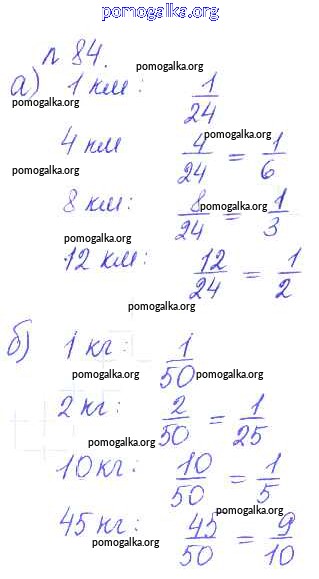 pomogalka.org
№ 84.
pomogalka.org
а) 1 км: 1/24
pomogalka.org
pomogalka.org
4 км 4/24 = 1/6
pomogalka.org
8 км: 8/24 = 1/3
pomogalka.org
pomogalka.org
12 км: 12/24 = 1/2
pomogalka.org
б) 1 кг: 1/50
pomogalka.org pomogalka.org
2 кг: 2/50 = 1/25
pomogalka.org
10 кг: 10/50 = 1/5
pomogalka.org
45 кг: 45/50 = 9/10
pomogalka.org